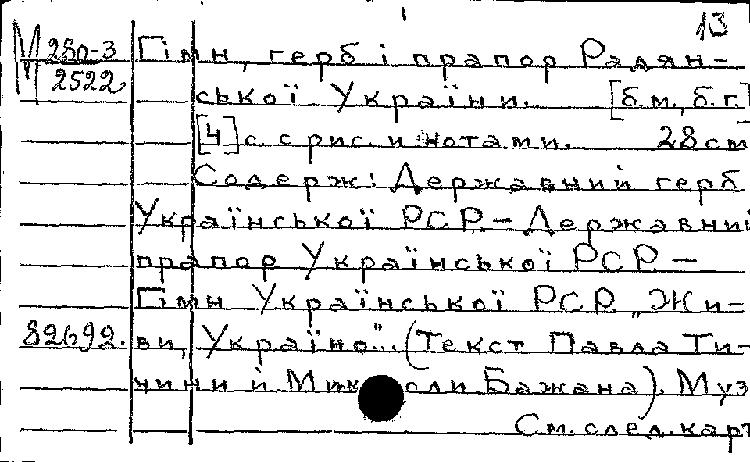 13
М 280-3
2522
Гімн, герб і прапор Радян-
ської України. [б.м., б.г.]
[4] с. с рис. и нотами. 28 см
Содерж: Державний герб
Української РСР. – Державний
прапор Української РСР –
Гімн Української РСР „Жи-
82692. ви, Україно". (Текст Павла Ти-
чини й Миколи Бажана). Муз
См. след. карт